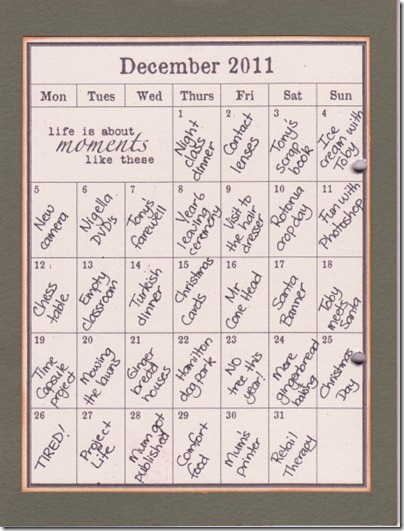 December 2011
Mon Tues Wed Thurs Fri Sat Sun
life is about
moments
like these
1
Night
class
dinner
2
Contact
lenses
3
Tony's
scrap
book
4
Ice
cream with
Toby
5
New
camera
6
Nigella
DVDs
7
Tonys
farewell
8
Year 6
leaving
ceremony
9
Visit to
the hair
dresser
10
Rotorua
crop day
11
Fun with
Photoshop
12
Chess
table
13
Empty
classroom
14
Turkish
dinner
15
Christmas
Cards
16
Mr
Cone Head
17
Santa
Banner
18
Toby
meets
Santa
19
Time
Capsule
project
20
Mowing
the lawns
21
Ginger
bread
houses
22
Hamilton
dog park
23
No
tree this
year!
24
More
gingerbread
baking
25
Christmas
Day
26
TIRED!
27
Project
Life
28
Mum got
published
29
Comfort
food
30
Mum's
printer
31
Retail
Therapy